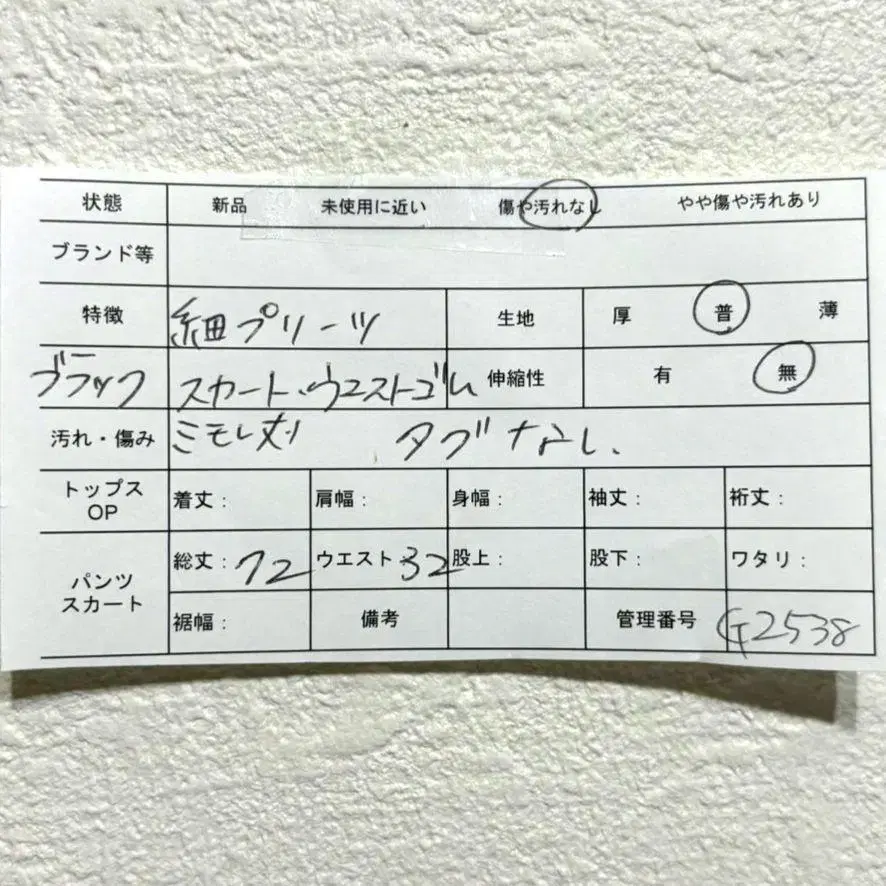 状態 新品 未使用に近い 傷や汚れなし やや傷や汚れあり
ブランド等
特徴 細プリーツ 生地 厚 普 薄
ブラック スカート、ウエストゴム 伸縮性 有 無
汚れ・傷み ミモレ丈 タグなし、
トップス OP 着丈: 肩幅: 身幅: 袖丈: 裄丈:
パンツ スカート 総丈:72 ウエスト32 股上: 股下: ワタリ:
裾幅: 備考 管理番号 G2538